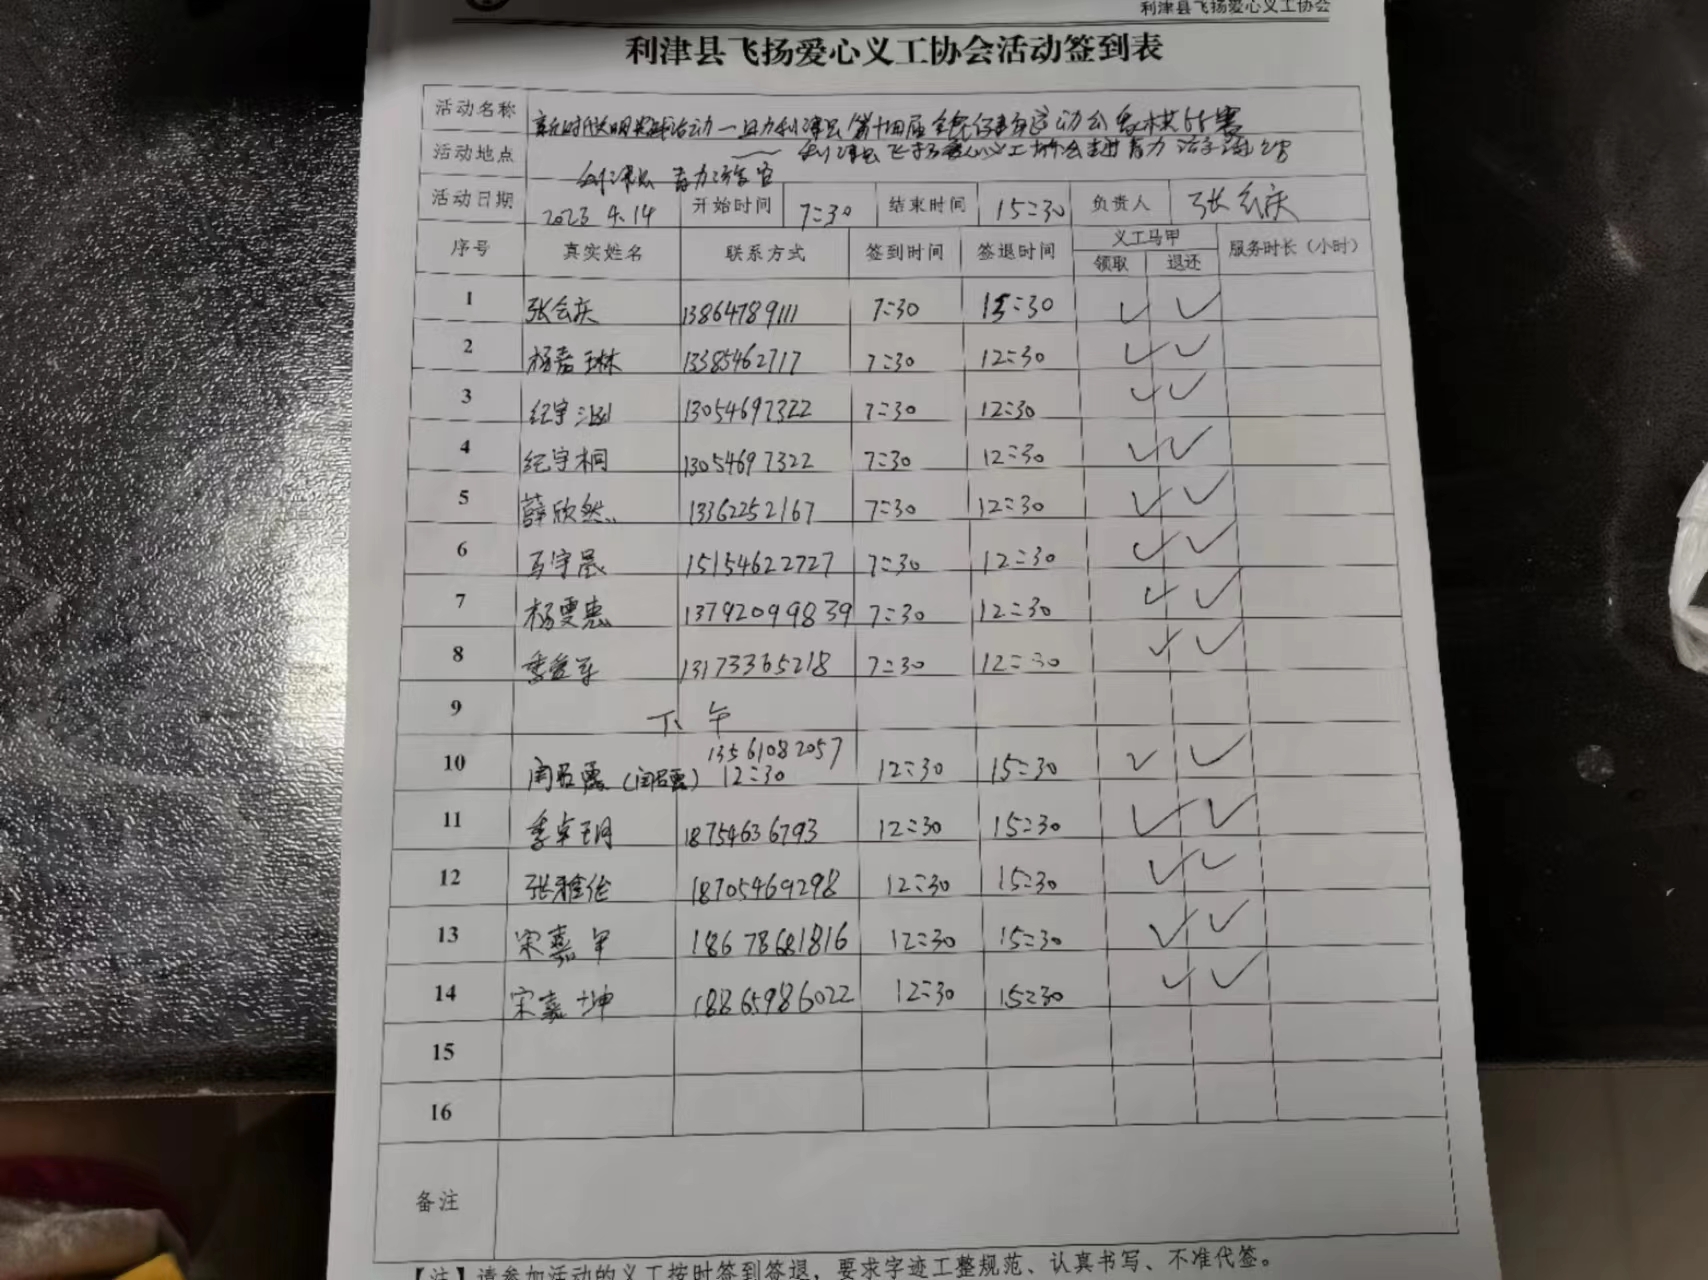 利津县飞扬爱心义工协会
利津县飞扬爱心义工协会活动签到表
活动名称 新时代文明实践活动一助力利津县第十四届全民健身运动会象棋比赛
—— 利津县飞扬爱心义工协会
活动地点 利津县
活动日期 2023 4.14 开始时间 7:30 结束时间 15:30 负责人 张会庆
序号 真实姓名 联系方式 签到时间 签退时间 义工马甲 服务时长（小时）
领取 退还
1 张会庆 13864789111 7:30 15:30 ✓ ✓
2 杨嘉琳 13385462717 7:30 12:30 ✓ ✓
3 纪宇涵 13054697322 7:30 12:30 ✓ ✓
4 纪宇桐 13054697322 7:30 12:30 ✓ ✓
5 薛欣然 13362252167 7:30 12:30 ✓ ✓
6 马宇晨 15154622727 7:30 12:30 ✓ ✓
7 杨雯惠 13792099839 7:30 12:30 ✓ ✓
8 13173365218 7:30 12:30 ✓ ✓
9 下午
13561082057
10 12:30 12:30 15:30 ✓ ✓
11 季卓玥 18754636793 12:30 15:30 ✓ ✓
12 张雅伦 18705469298 12:30 15:30 ✓ ✓
13 宋嘉 18678681816 12:30 15:30 ✓ ✓
14 宋嘉坤 18865986022 12:30 15:30 ✓ ✓
15
16
备注
【注】请参加活动的义工按时签到签退，要求字迹工整规范、认真书写、不准代签。